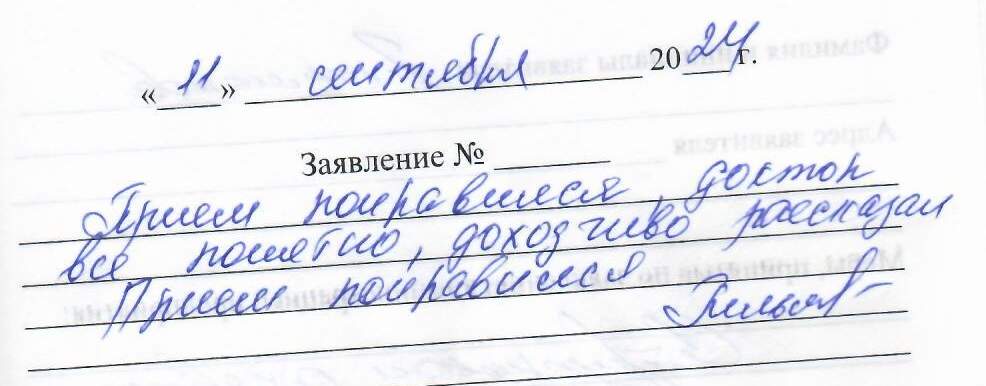 «11» сентября 2024 г.
Заявление № ______
Прием понравился, доктор
все понятно, доходчиво рассказал
Прием понравился